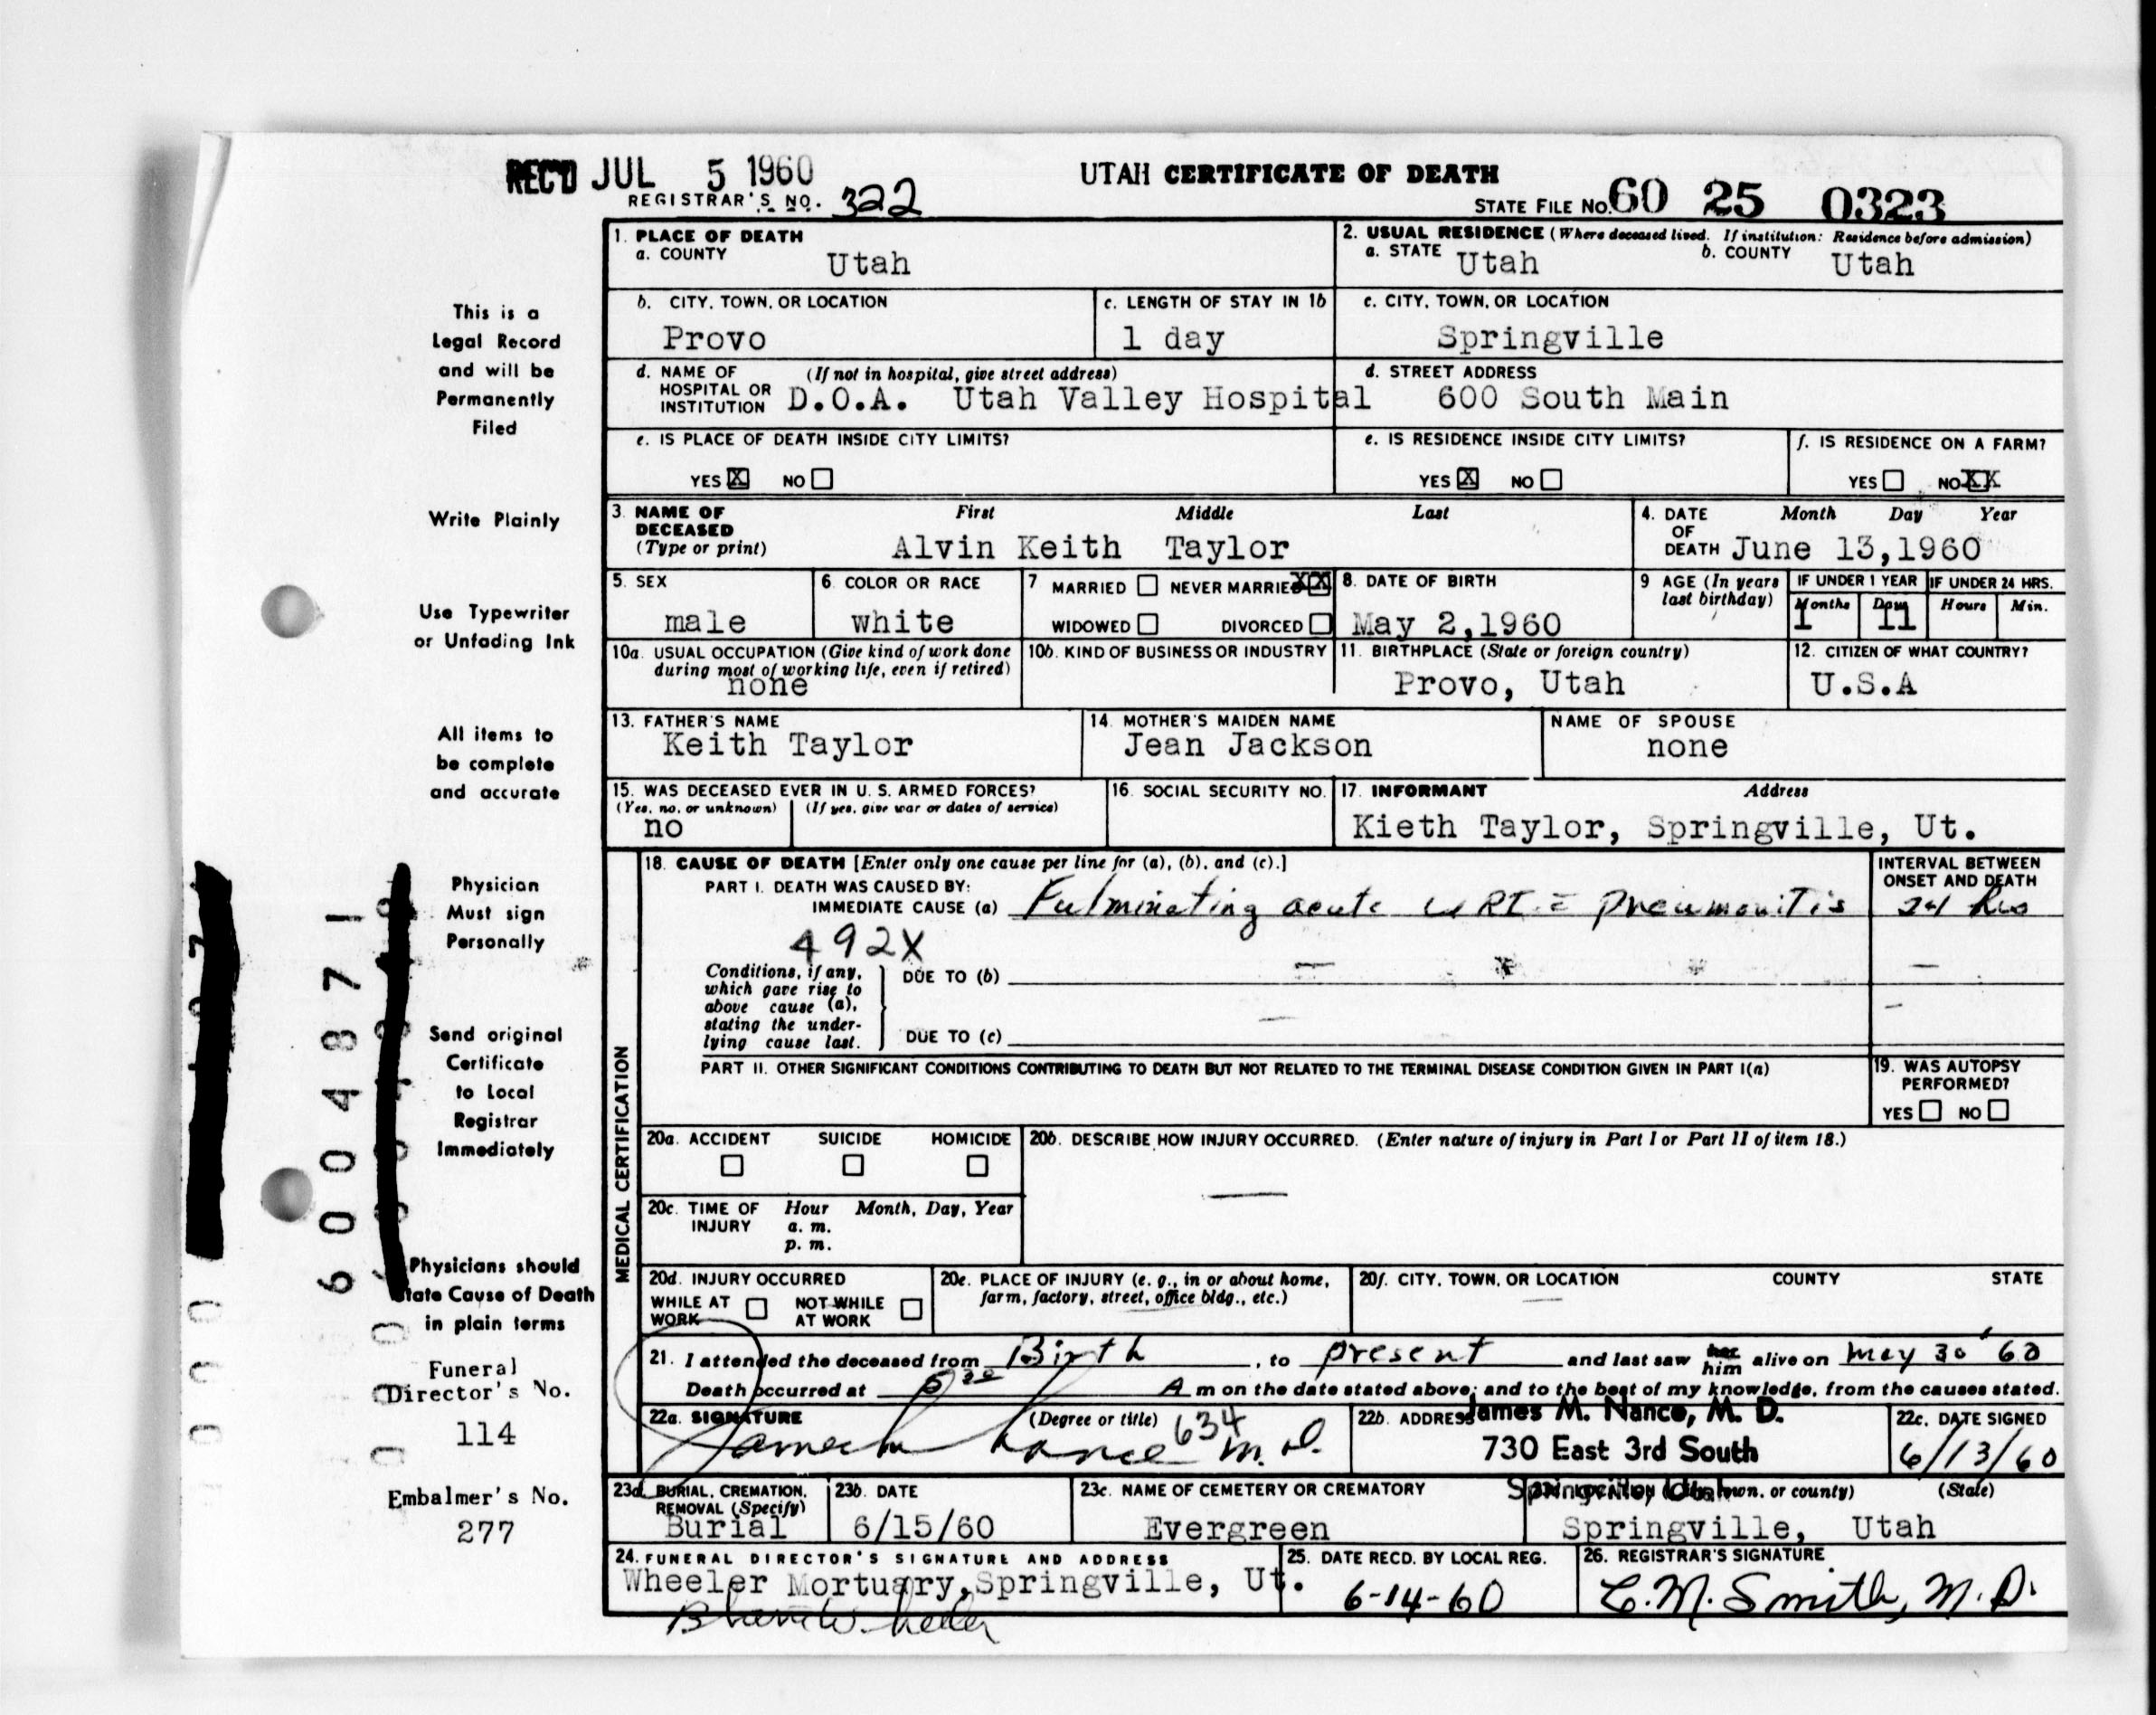 REC'D JUL 5 1960
UTAH CERTIFICATE OF DEATH
REGISTRAR'S NO. 322
STATE FILE NO. 60 25 0323
1. PLACE OF DEATH
a. COUNTY Utah
2. USUAL RESIDENCE (Where deceased lived. If institution: Residence before admission)
a. STATE Utah b. COUNTY Utah
b. CITY, TOWN, OR LOCATION
Provo
c. LENGTH OF STAY IN 1b
1 day
c. CITY, TOWN, OR LOCATION
Springville
d. NAME OF HOSPITAL OR INSTITUTION (If not in hospital, give street address)
D.O.A. Utah Valley Hospital
d. STREET ADDRESS
600 South Main
e. IS PLACE OF DEATH INSIDE CITY LIMITS?
YES X NO
e. IS RESIDENCE INSIDE CITY LIMITS?
YES X NO
f. IS RESIDENCE ON A FARM?
YES NO XX
3. NAME OF DECEASED (Type or print)
First Middle Last
Alvin Keith Taylor
4. DATE OF DEATH Month Day Year
June 13,1960
5. SEX
male
6. COLOR OR RACE
white
7 MARRIED NEVER MARRIED XX
WIDOWED DIVORCED
8. DATE OF BIRTH
May 2,1960
9 AGE (In years last birthday)
IF UNDER 1 YEAR IF UNDER 24 HRS.
Months Days Hours Min.
1 11
10a. USUAL OCCUPATION (Give kind of work done during most of working life, even if retired)
none
10b. KIND OF BUSINESS OR INDUSTRY
11. BIRTHPLACE (State or foreign country)
Provo, Utah
12. CITIZEN OF WHAT COUNTRY?
U.S.A
13. FATHER'S NAME
Keith Taylor
14. MOTHER'S MAIDEN NAME
Jean Jackson
NAME OF SPOUSE
none
15. WAS DECEASED EVER IN U. S. ARMED FORCES?
(Yes, no, or unknown) (If yes, give war or dates of service)
no
16. SOCIAL SECURITY NO.
17. INFORMANT Address
Kieth Taylor, Springville, Ut.
MEDICAL CERTIFICATION
18. CAUSE OF DEATH [Enter only one cause per line for (a), (b), and (c).]
INTERVAL BETWEEN ONSET AND DEATH
PART I. DEATH WAS CAUSED BY:
IMMEDIATE CAUSE (a) Fulminating acute URI c̄ pneumonitis 24 hrs
492X
Conditions, if any, which gave rise to above cause (a), stating the underlying cause last.
DUE TO (b) —
DUE TO (c) —
PART II. OTHER SIGNIFICANT CONDITIONS CONTRIBUTING TO DEATH BUT NOT RELATED TO THE TERMINAL DISEASE CONDITION GIVEN IN PART I(a)
19. WAS AUTOPSY PERFORMED?
YES NO
20a. ACCIDENT SUICIDE HOMICIDE
20b. DESCRIBE HOW INJURY OCCURRED. (Enter nature of injury in Part I or Part II of item 18.)
—
20c. TIME OF INJURY Hour Month, Day, Year
a. m.
p. m.
20d. INJURY OCCURRED
WHILE AT WORK NOT WHILE AT WORK
20e. PLACE OF INJURY (e. g., in or about home, farm, factory, street, office bldg., etc.)
20f. CITY, TOWN, OR LOCATION COUNTY STATE
—
21. I attended the deceased from Birth, to present and last saw her him alive on May 30 '60
Death occurred at 5 30 A m on the date stated above; and to the best of my knowledge, from the causes stated.
22a. SIGNATURE (Degree or title)
James M Nance M.D.
634
22b. ADDRESS
James M. Nance, M. D.
730 East 3rd South
Springville, Utah
22c. DATE SIGNED
6/13/60
23a. BURIAL, CREMATION, REMOVAL (Specify)
Burial
23b. DATE
6/15/60
23c. NAME OF CEMETERY OR CREMATORY
Evergreen
town, or county) (State)
Springville, Utah
24. FUNERAL DIRECTOR'S SIGNATURE AND ADDRESS
Wheeler Mortuary, Springville, Ut.
25. DATE RECD. BY LOCAL REG.
6-14-60
26. REGISTRAR'S SIGNATURE
C.M. Smith, M.D.
This is a
Legal Record
and will be
Permanently
Filed
Write Plainly
Use Typewriter
or Unfading Ink
All items to
be complete
and accurate
Physician
Must sign
Personally
Send original
Certificate
to Local
Registrar
Immediately
Physicians should
State Cause of Death
in plain terms
Funeral
Director's No.
114
Embalmer's No.
277
6004871